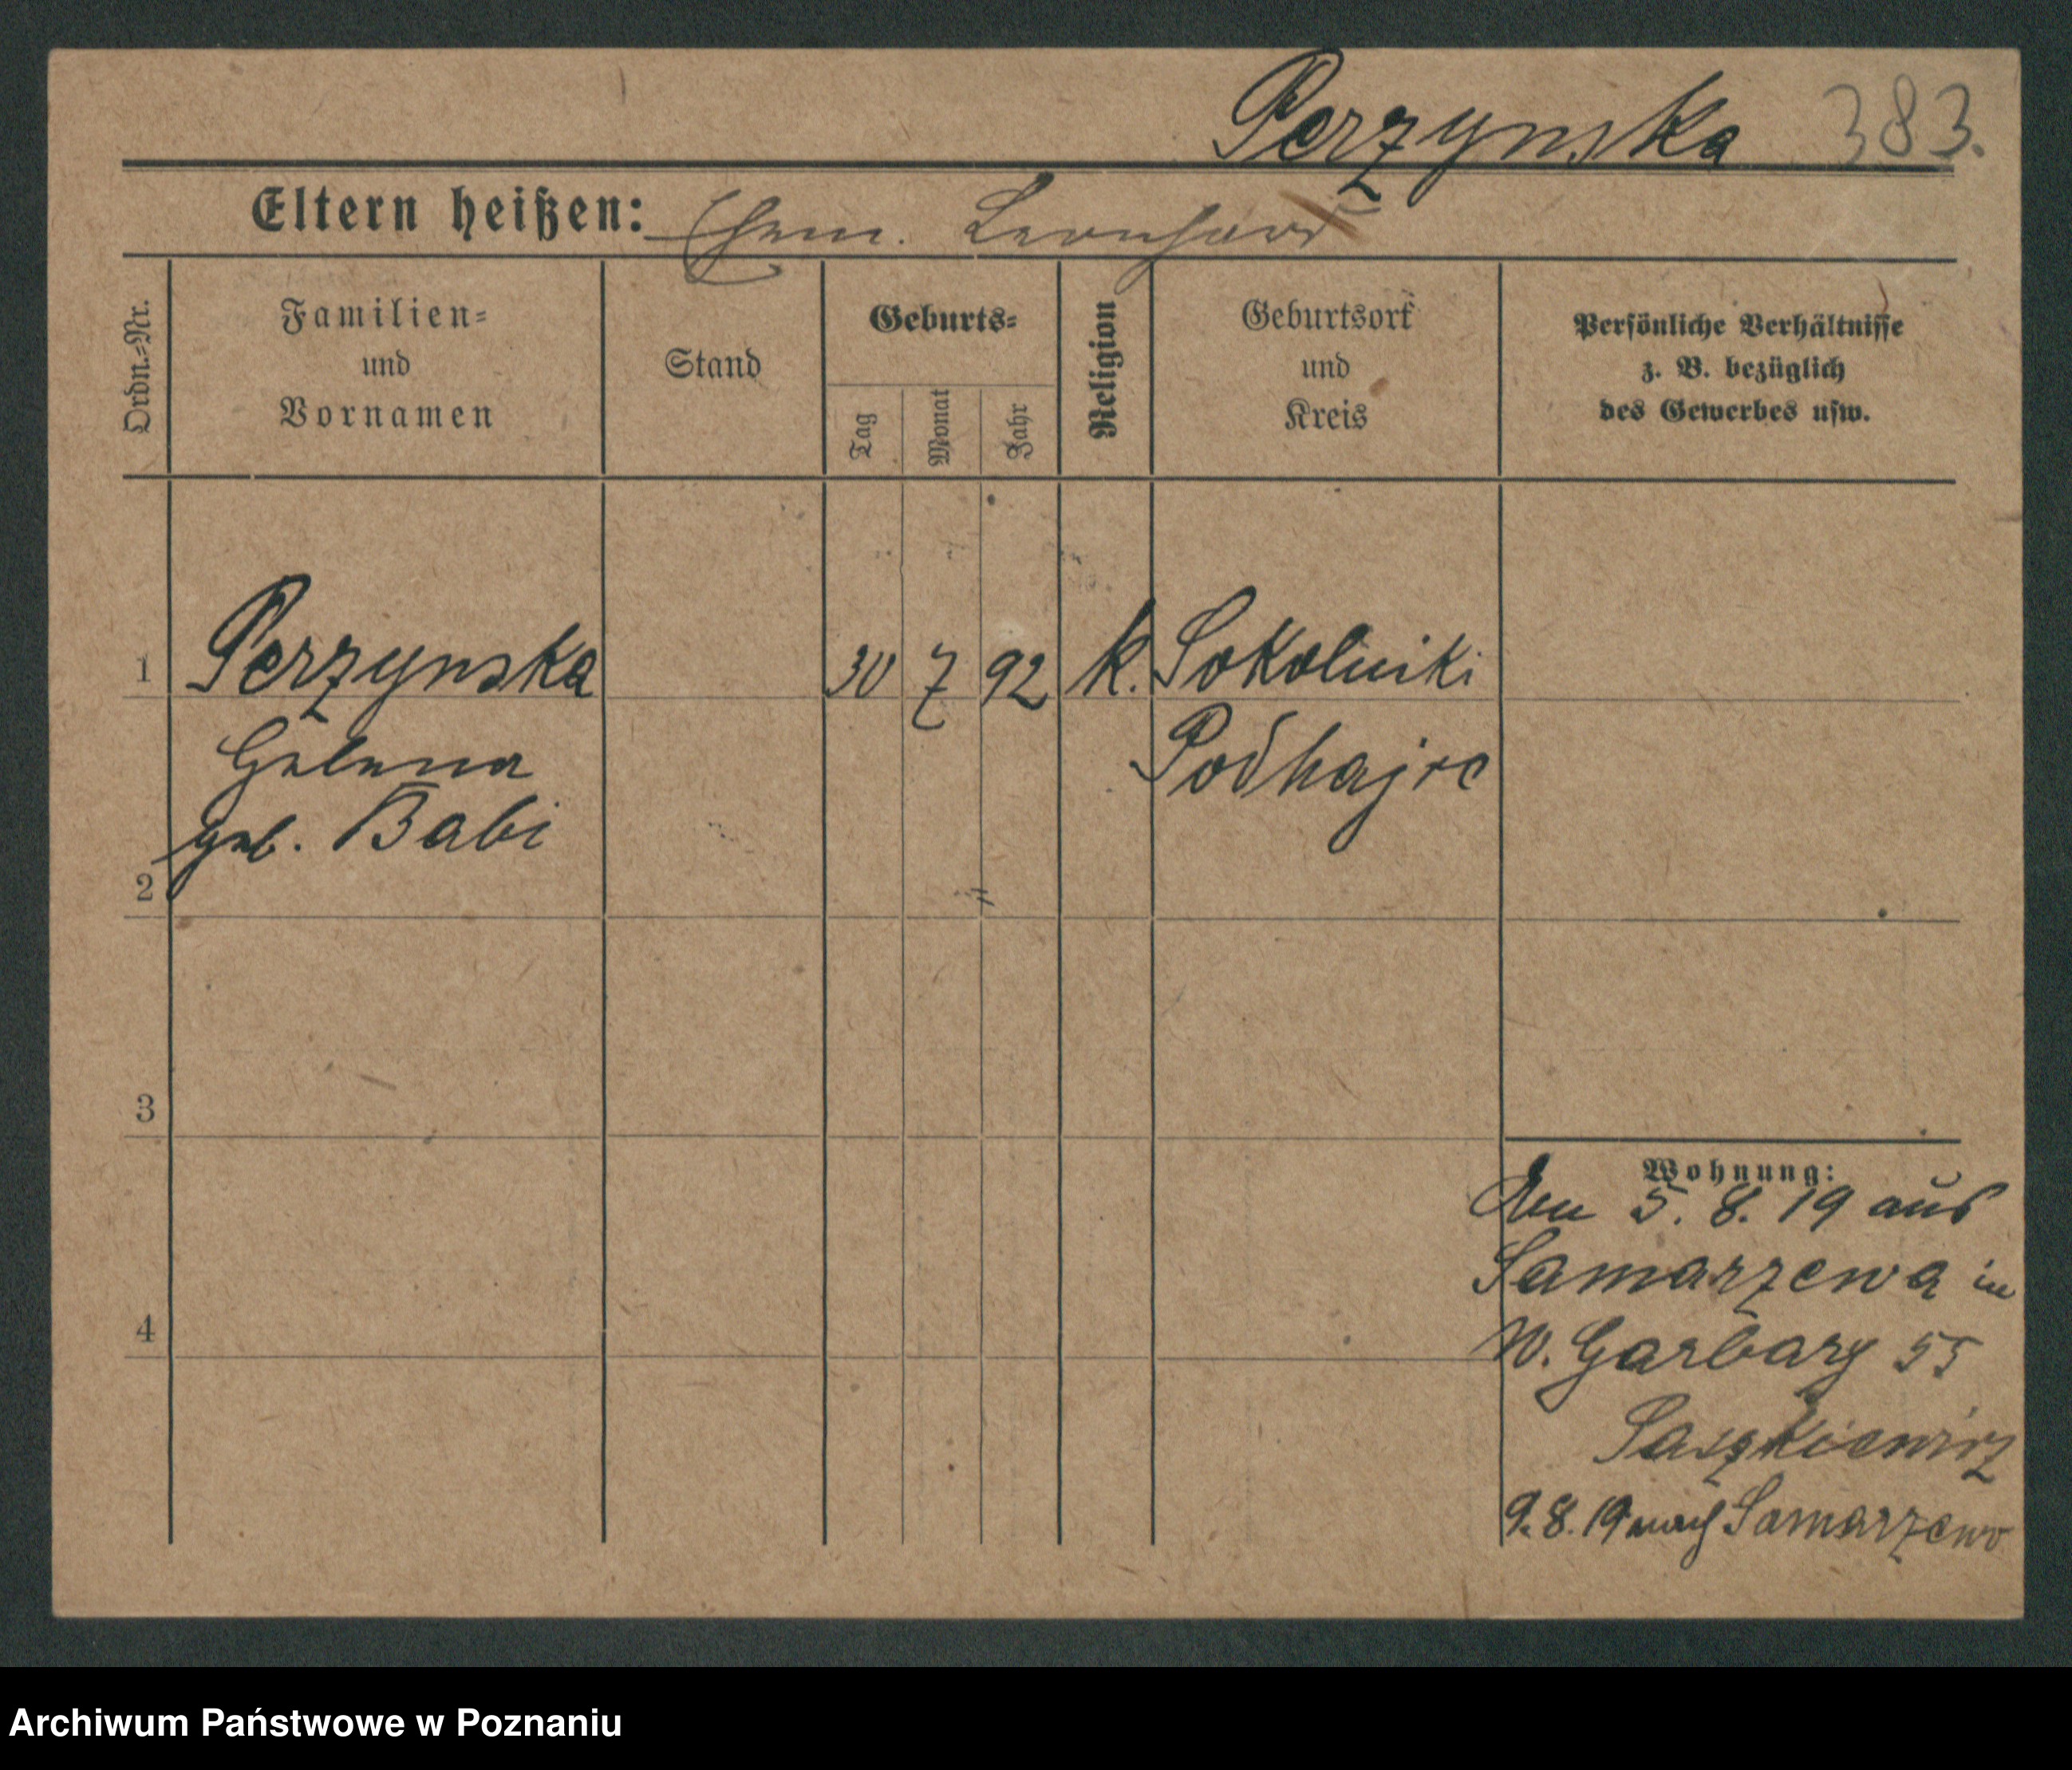 Perzynska 383.
Eltern heißen: Ehem. Leonhard
Ordn.=Nr.
Familien=
und
Vornamen
Stand
Geburts=
Tag
Monat
Jahr
Religion
Geburtsort
und
Kreis
Persönliche Verhältnisse
z. B. bezüglich
des Gewerbes usw.
1 Perzynska 30 7 92 k. Sokolniki
Helena Podhajce
geb. Babi
2
3
4
Wohnung:
5. 8. 19 aus
Samarzewa in
W. Garbary 55
9. 8. 19 nach Samarzewo
Archiwum Państwowe w Poznaniu